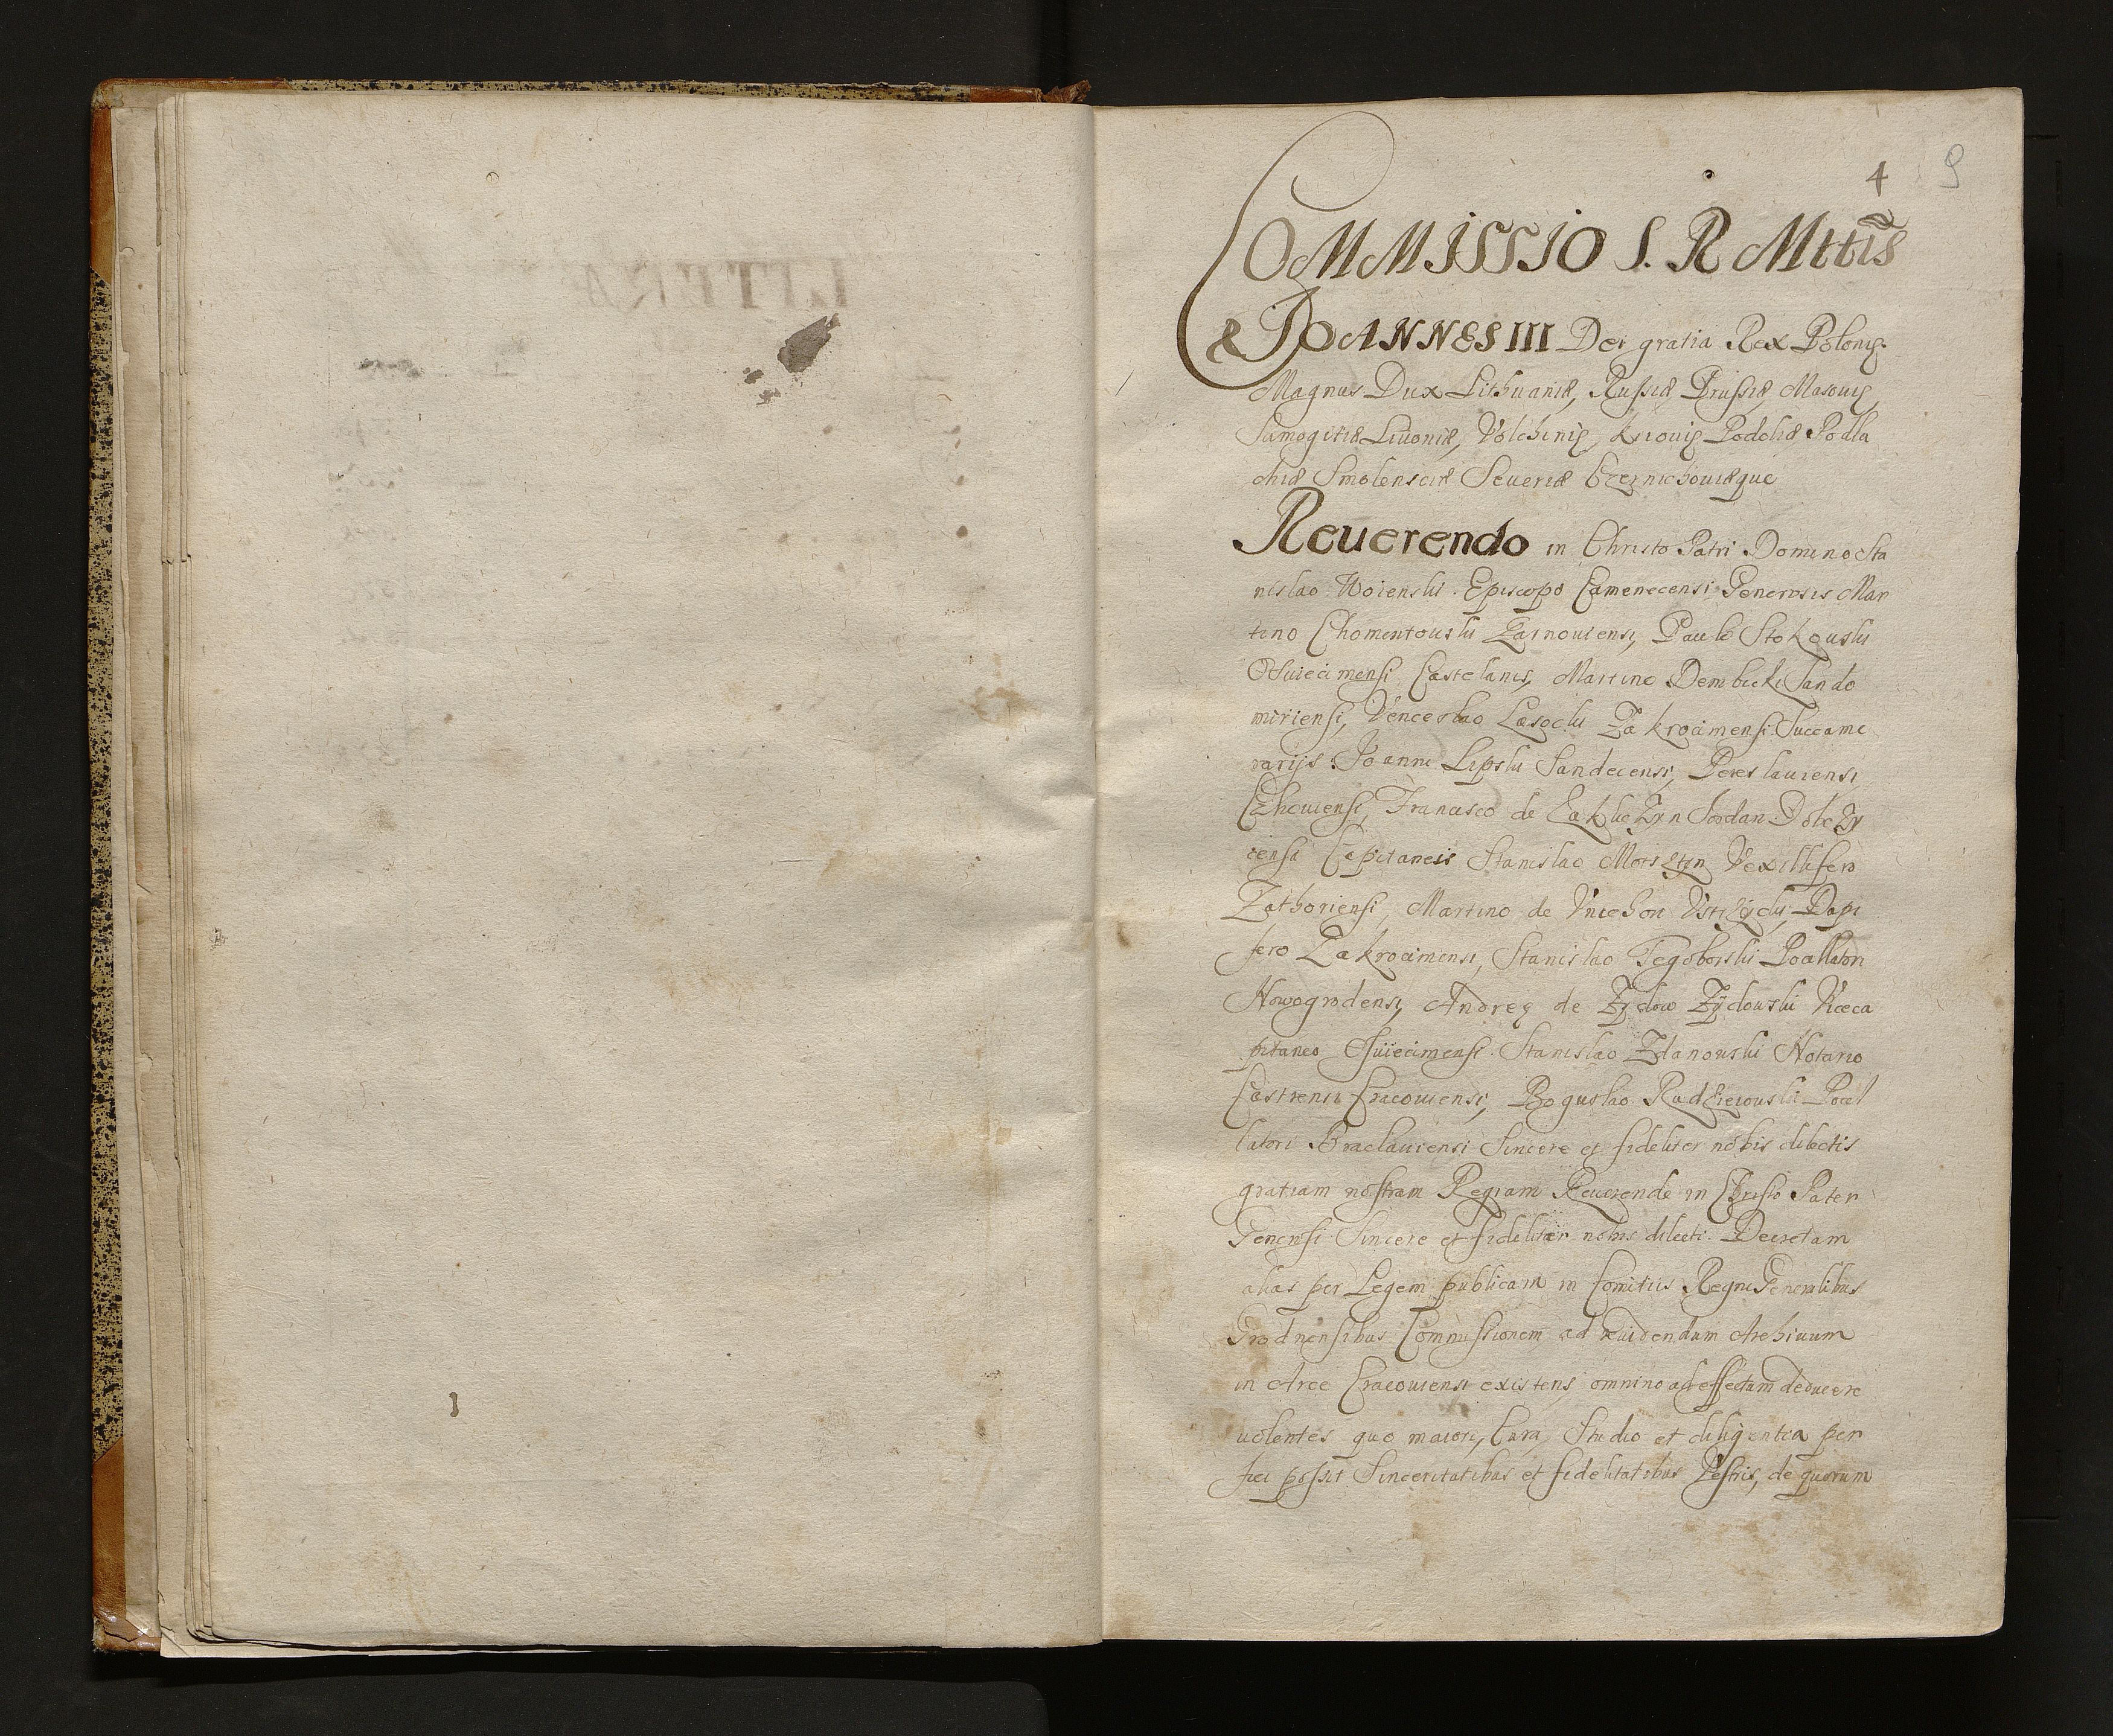 4 9
COMMISSIO S. R Mttis
JOANNES III Dei gratia Rex Polonię
Magnus Dux Lithuaniæ, Russiæ Prussiæ, Masouię
Samogitiæ Liuoniæ, Volhinię, Kiouię Podoliæ Podla
chiæ Smolensciæ Seueriæ Czernichouiæque
Reuerendo in Christo Patri Domino Sta
nislao Woienski Episcopo Camenecensi Generosis Mar
tino Chomentouski Zarnouiensi, Paulo Stokouski
Osuiecimensi Castelanis, Martino Dembicki Sando
miriensi, Venceslao Lasocki Zakrocimensi Succame
rarijs. Joanni Lipski Sandecensi, Pereslauiensi
Czhouiensi, Francisco de Zakliczyn Jordan Dobczy
censi Capitaneis Stanislao Morsztyn Vexillifero
Zathoriensi, Martino de Vniechow Vstrzycki Dapi
fero Zakrocimensi, Stanislao Tegoborski
Nowogrodensi, Andreę de Zydow Zydouski Viceca
pitaneo Osuiecimensi. Stanislao Zdanouski Notario
Castrensi Cracouiensi, Boguslao Radzieiouski Pocil
latori Braclauiensi Sincere et fideliter nobis dilectis
gratiam nostram Regiam Reuerende in Christo Pater
Generosi Sincere et fideliter nobis dilecti. Decretam
alias per Legem publicam in Comitiis Regni Generalibus
Grodnensibus Commissionem ad reuidendum Archiuum
in Arce Cracouiensi existens, omnino ad effectum deducere
uolentes quo maiori, Cura, Studio et diligentia per
fici possit Sinceritatibus et fidelitatibus Vestris, de quorum